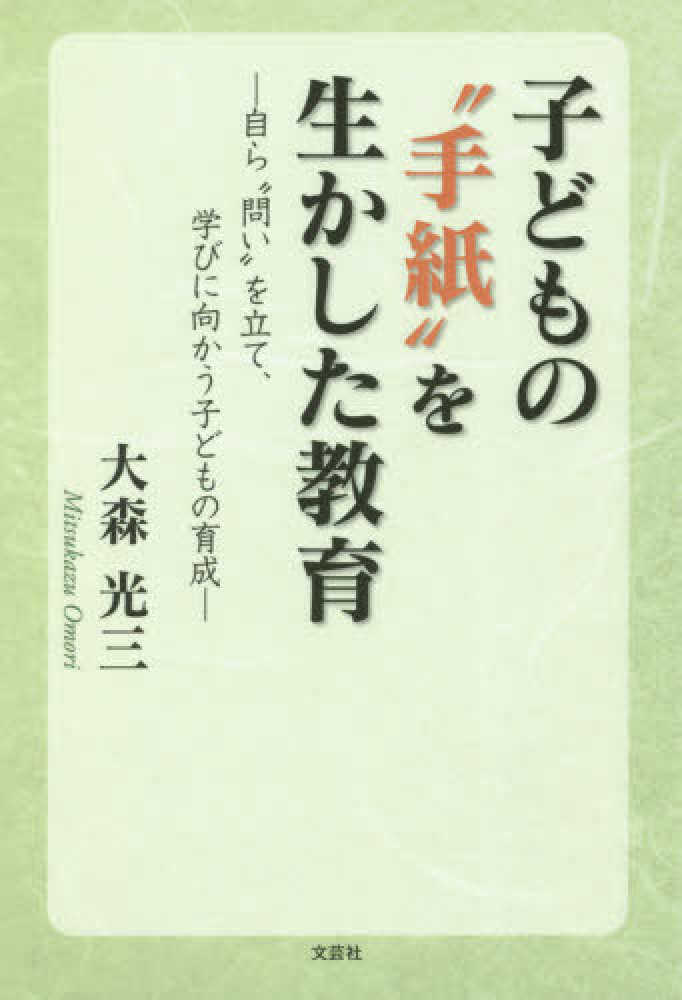 子どもの
〝手紙〟を
生かした教育
―自ら〝問い〟を立て、
学びに向かう子どもの育成―
大森 光三
Mitsukazu Omori
文芸社